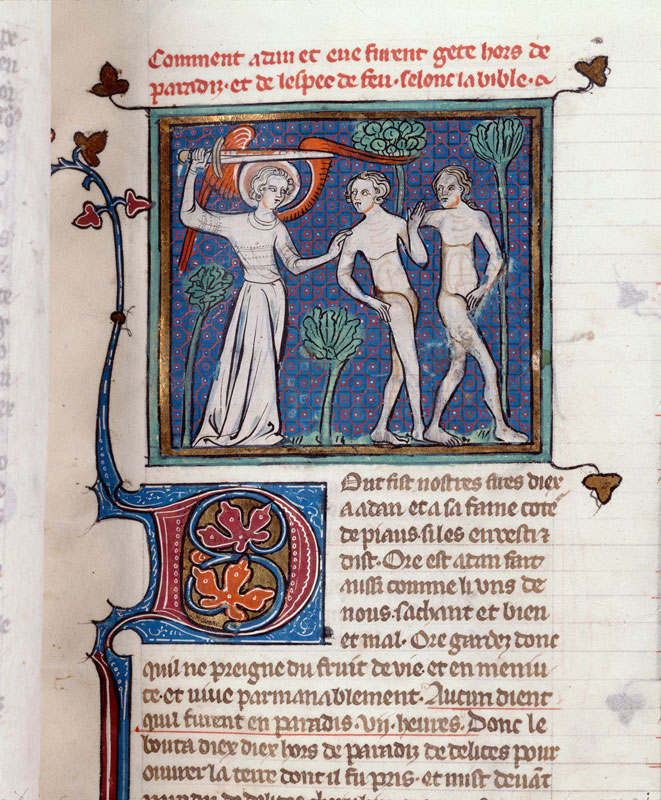 Comment adan et eue furent gete hors de
paradiz · et de lespee de feu · selonc la bible · &
Dont fist nostres sires diex
a adan et a sa fame cote
de piaus · si les enuesti ⁊
dist · Ore est adan fait
aussi comme li uns de
nous · sachant et bien
et mal · Ore gardez donc
quil ne preigne du fruit de vie et en meniu
ce · et viue parmanablement · Aucun dient
quil furent en paradis · vij · heures · Donc le
bouta diex diex hors de paradiz de delices pour
ouurer la terre dont il fu pris · et mist deuāt
paradiz de delices